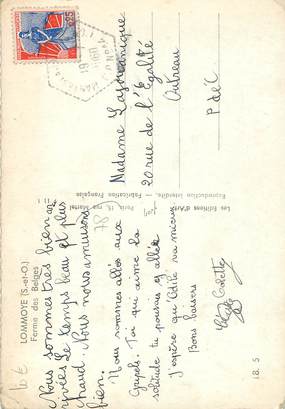 LOMMOYE (S.-et-O.)
Ferme des Belges
Nous sommes très bien ar
rivées Le temps beau et plus
chaud. Nous nous amusons
bien.
Nous sommes allés aux
Toi qui aime la
solitude tu pourrais y aller
J'espère qu'Odile va mieux
Bons baisers
Colette
Les Editions d'Art
Paris, 18, rue Martel
Reproduction Interdite. - Fabrication Française
Madame
20 rue de l'Egalité
Outreau
P de C
0,25
18.5